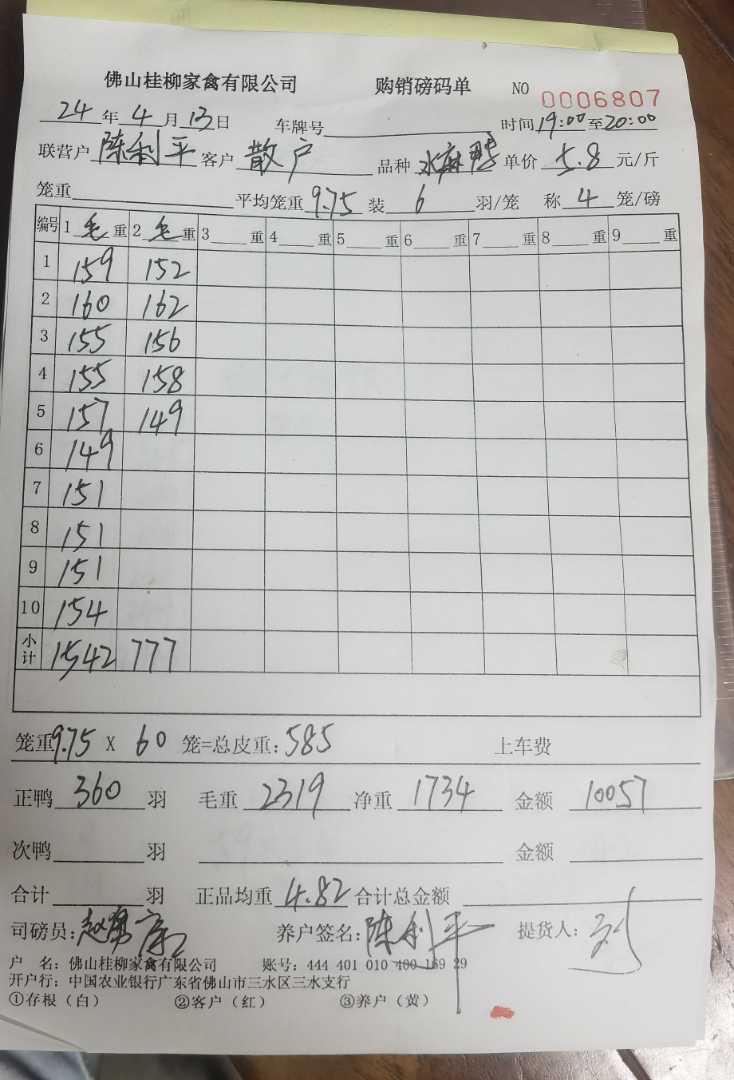 佛山桂柳家禽有限公司 购销磅码单 NO 0006807
24年4月13日 车牌号 时间19:00至20:00
联营户 陈利平 客户 散户 品种 水麻鸭 单价 5.8 元/斤
笼重 平均笼重 9.75 装 6 羽/笼 称 4 笼/磅
编号 1 毛 重 2 毛 重 3 重 4 重 5 重 6 重 7 重 8 重 9 重
1 159 152
2 160 162
3 155 156
4 155 158
5 157 149
6 149
7 151
8 151
9 151
10 154
小计 1542 777
笼重9.75 X 60 笼=总皮重:585 上车费
正鸭 360 羽 毛重 2319 净重 1734 金额 10057
次鸭 羽 金额
合计 羽 正品均重 4.82 合计总金额
司磅员: 养户签名:陈利平 提货人:刘
户 名: 佛山桂柳家禽有限公司 账号: 444 401 010 400 169 29
开户行: 中国农业银行广东省佛山市三水区三水支行
①存根（白） ②客户（红） ③养户（黄）